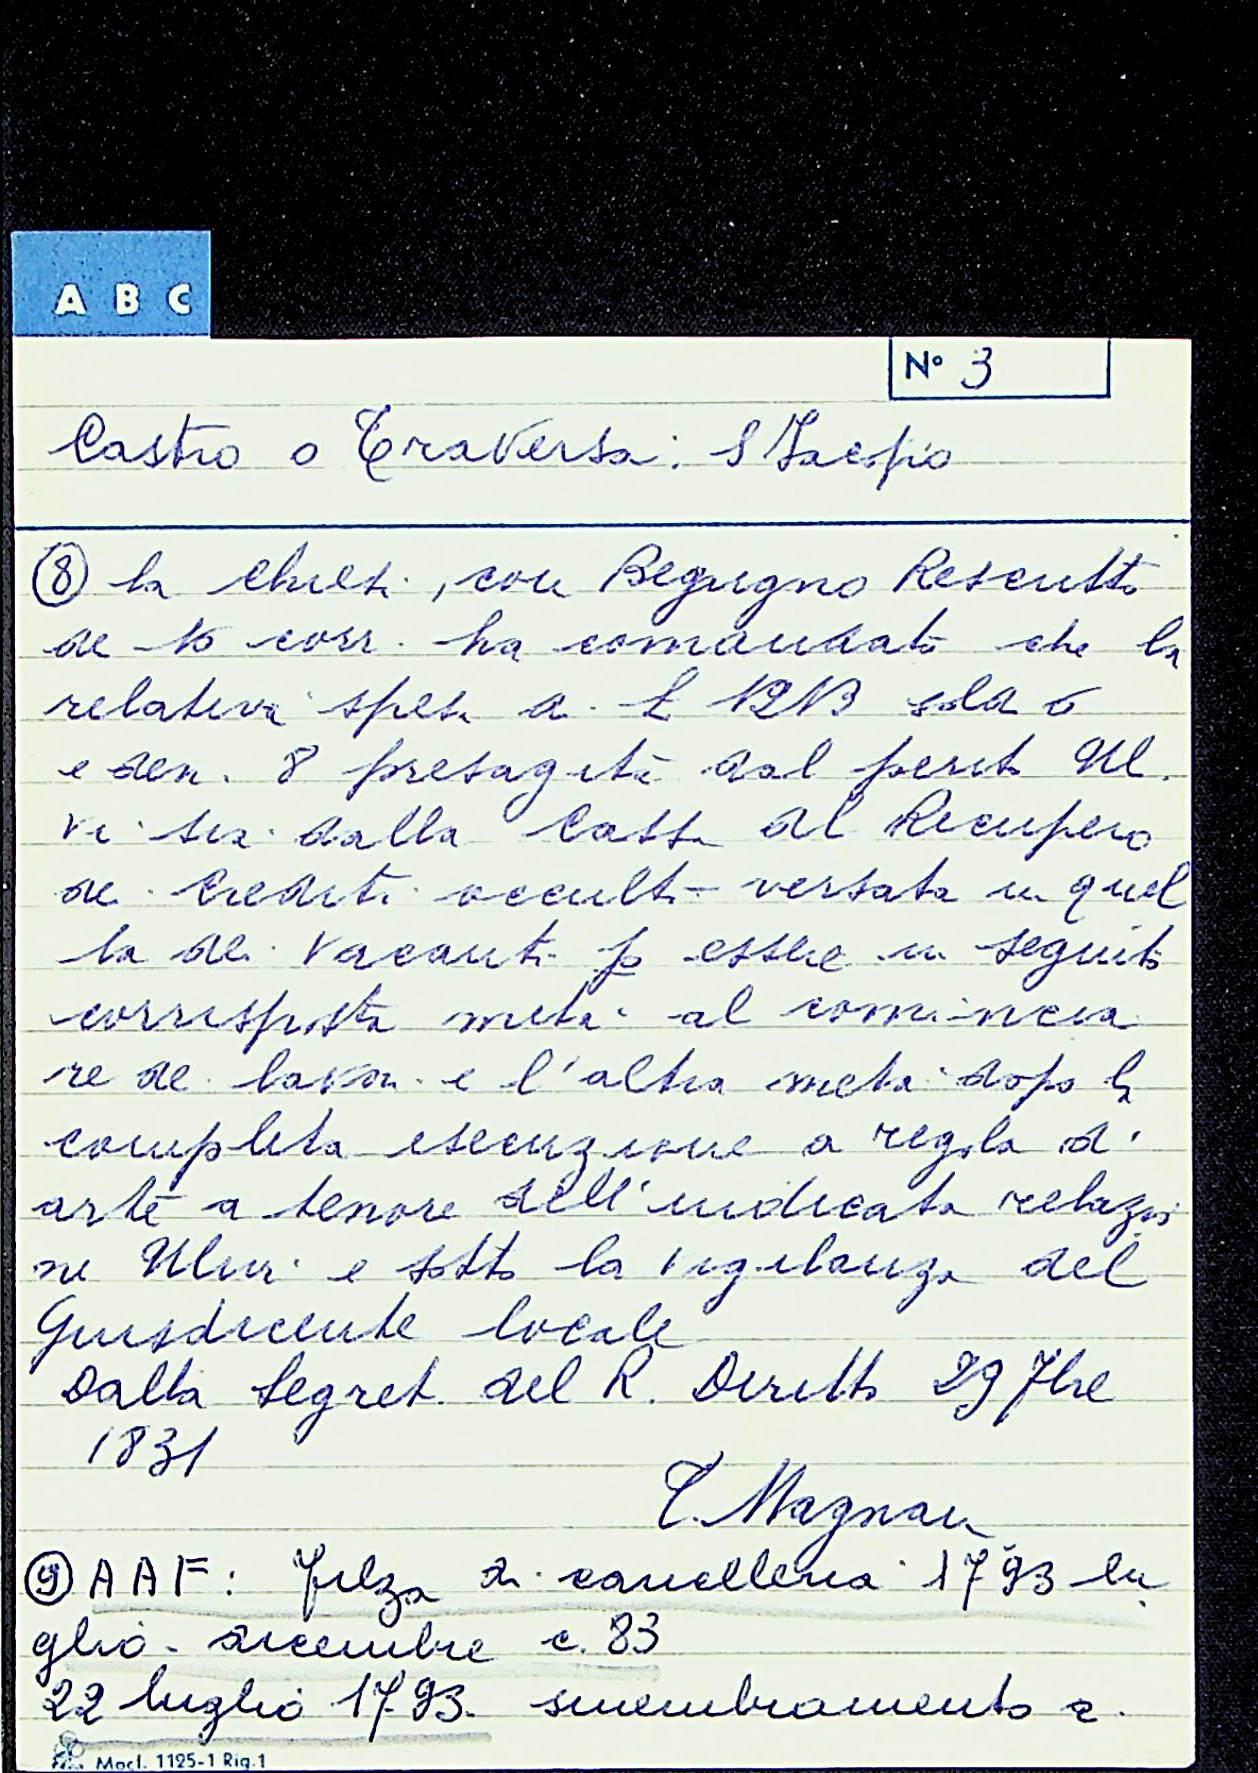 A B C
N° 3
Castro o Traversa: S Jacopo
⑧ la chiesa, con Begnigno Rescritto
de 16 corr. ha comandato che la
relativa spesa di £ 1213 sold 6
e den. 8 presagita dal perito Ul
vi sia dalla Cassa del Recupero
dei Crediti occulti versata in quel
la dei Vacanti p essere in seguito
corrisposta metà al comincia
re dei lavori e l'altra metà dopo la
completa esecuzione a regola d'
arte a tenore dell'indicata relazio
ne Ulivi e sotto la vigilanza del
Giusdicente locale
Dalla Segret. del R. Diritto 29 7bre
1831
T. Magnani
⑨ AAF: Filza di cancelleria 1793 lu
glio - dicembre c. 83
22 luglio 1793. smembramento
Mod. 1125-1 Rig.1